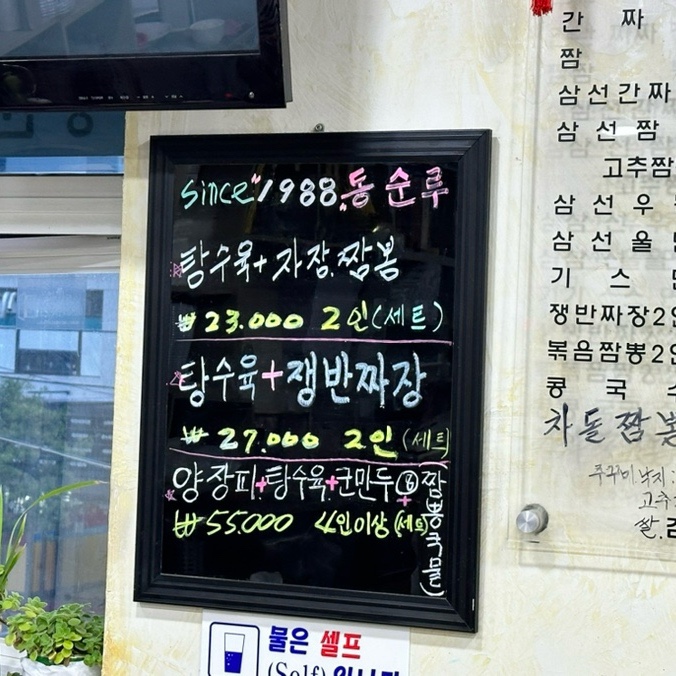 since "1988" 동순루
탕수육+자장.짬뽕
₩ 23.000 2인(세트)
탕수육+쟁반짜장
₩ 27.000 2인(세트)
양장피+탕수육+군만두⑥+짬뽕국물
₩ 55.000 4인이상(세트)
물은 셀프
(Self)
간 짜
짬
삼선간짜
삼선짬
고추짬
삼선우
삼선울
기스면
쟁반짜장2인
볶음짬뽕2인
콩국수
차돌짬뽕
쭈꾸미.낙지:
고추
쌀.김